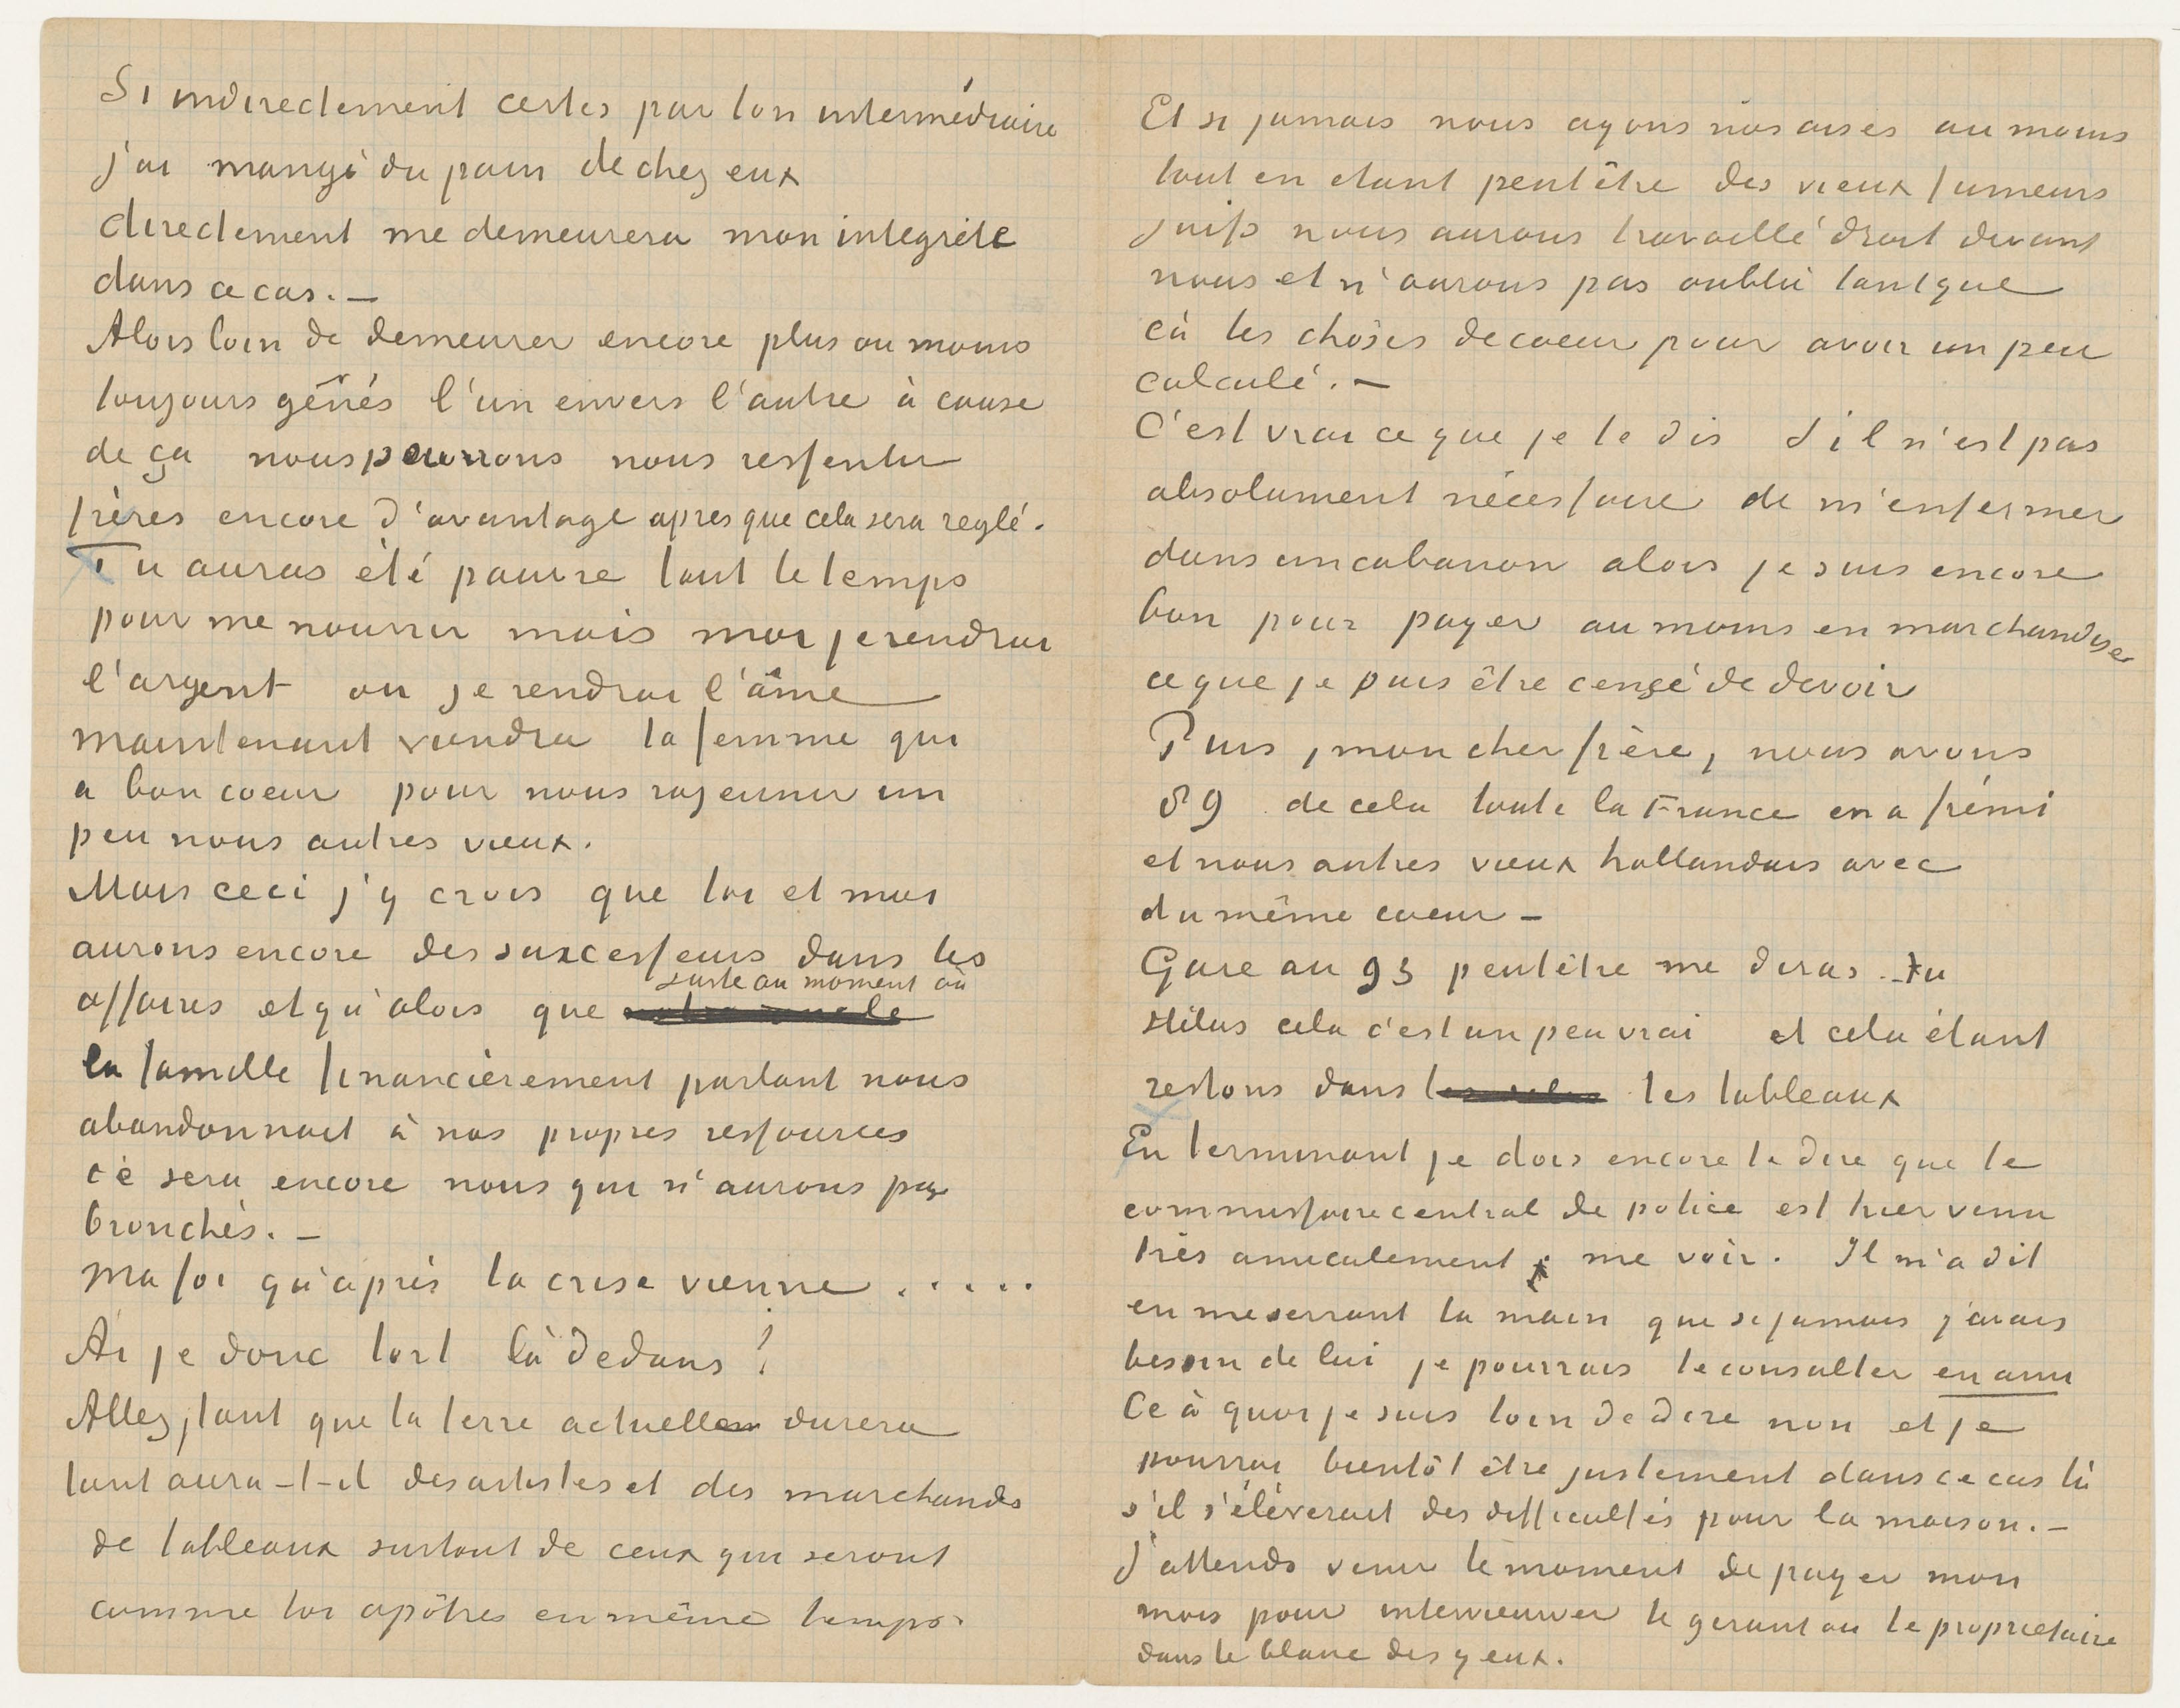 Si indirectement certes par ton intermédiaire
j'ai mangé du pain de chez eux
directement me demeurera mon integrité
dans ce cas. —
Alors loin de demeurer encore plus ou moins
toujours gênés l'un envers l'autre à cause
de ça nous pourrons nous ressentir
frères encore d'avantage apres que cela sera reglé.
Tu auras été pauvre tout le temps
pour me nourrir mais moi je rendrai
l'argent ou je rendrai l'âme
maintenant viendra ta femme qui
a bon coeur pour nous rajeunir un
peu nous autres vieux.
Mais ceci j'y crois que toi et moi
aurons encore des successeurs dans les
juste au moment où
affaires et qu'alors que
la famille financièrement parlant nous
abandonnait à nos propres ressources
ce sera encore nous qui n'aurons pas
bronchés. —
Ma foi qu'après la crise vienne . . . . .
Ai je donc tort là dedans?
Allez, tant que la terre actuelle durera
tant aura-t-il des artistes et des marchands
de tableaux surtout de ceux qui seront
comme toi apôtres en même temps.
Et si jamais nous ayons nos aises au moins
tout en étant peut être des vieux fumeurs
juifs nous aurons travaillé droit devant
nous et n'aurons pas oublié tant que
cà les choses de coeur pour avoir un peu
calculé. —
C'est vrai ce que je te dis s'il n'est pas
absolument nécessaire de m'enfermer
dans un cabanon alors je suis encore
bon pour payer au moins en marchandise
ce que je puis être censé de devoir
Puis, mon cher frère, nous avons
89 de cela toute la France en a frémi
et nous autres vieux hollandais avec
du même coeur —
Gare au 93 peut être me diras-tu
Hélas cela c'est un peu vrai et cela étant
restons dans les tableaux
En terminant je dois encore te dire que le
commissaire central de police est hier venu
très amicalement me voir. Il m'a dit
en me serrant la main que si jamais j'avais
besoin de lui je pourrais le consulter en ami
Ce à quoi je suis loin de dire non et je
pourrai bientôt être justement dans ce cas là
s'il s'élèverait des difficultés pour la maison. —
J'attends venir le moment de payer mon
mois pour interviewer le gerant ou le proprietaire
dans le blanc des yeux.